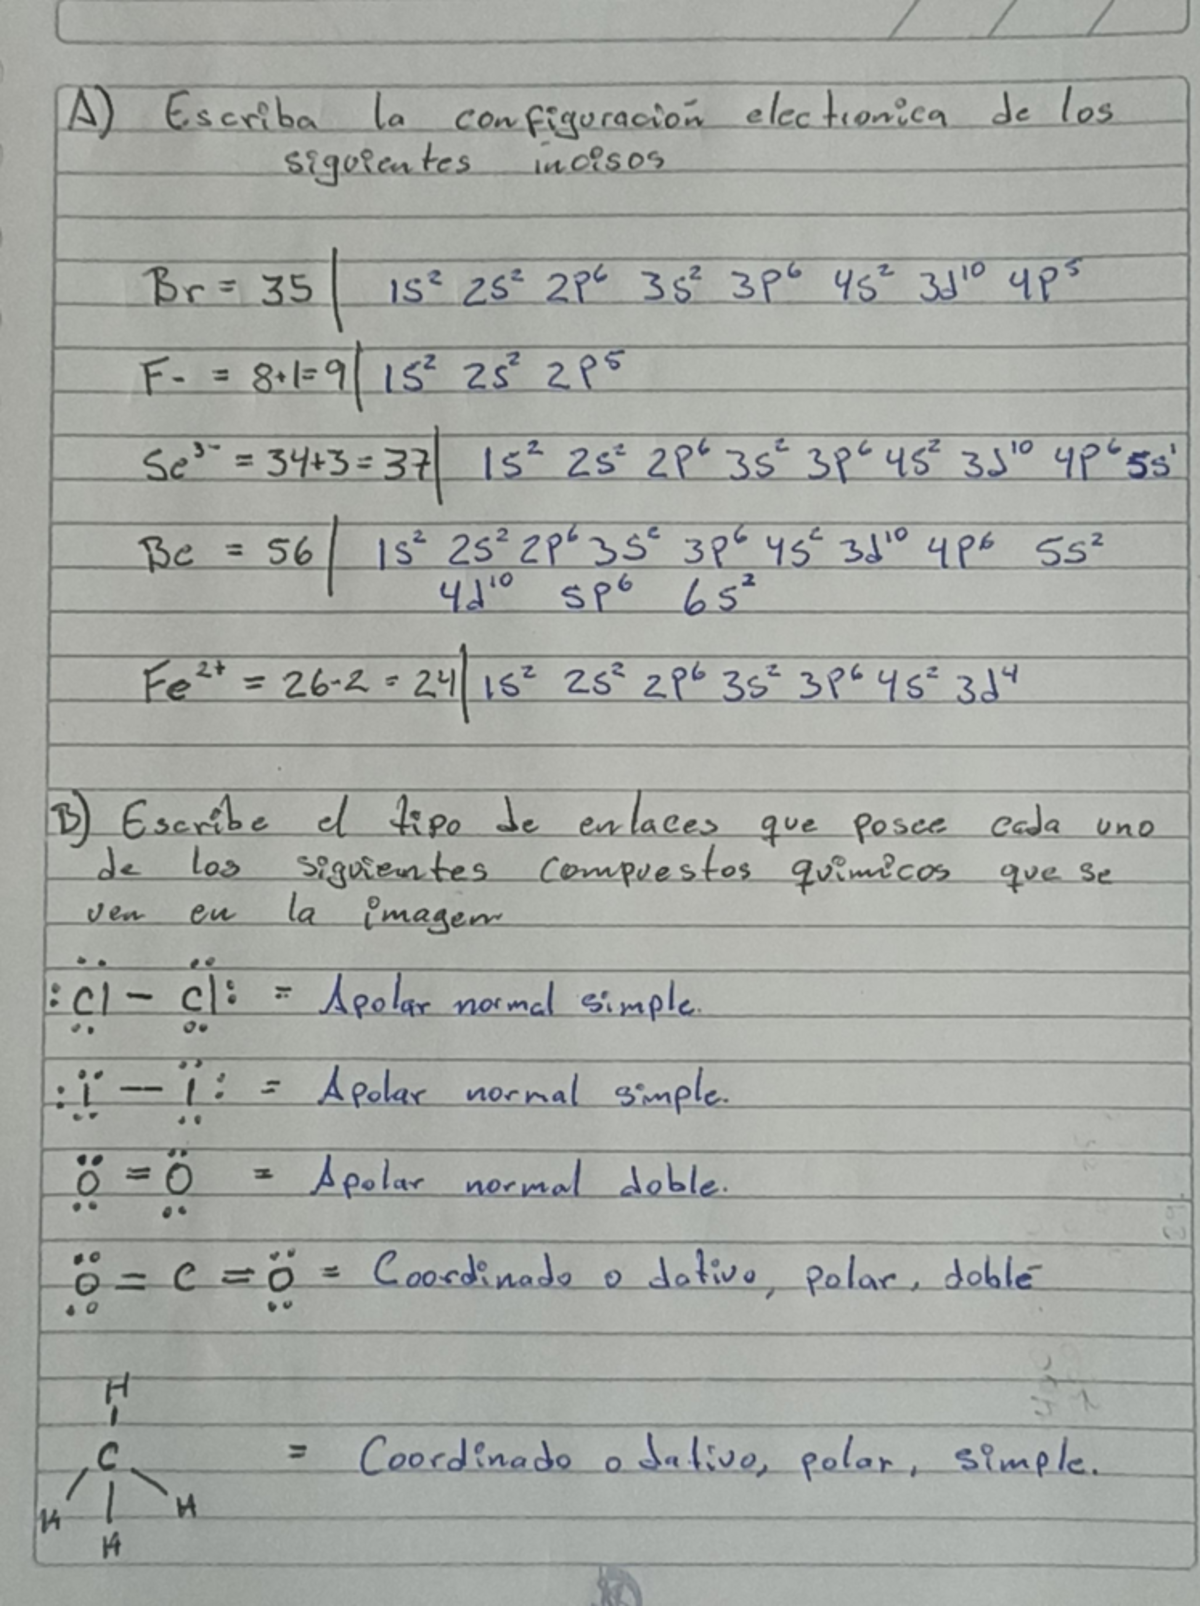 A) Escriba la configuración electronica de los
siguientes incisos
Br = 35 | 1s² 2s² 2p⁶ 3s² 3p⁶ 4s² 3d¹⁰ 4p⁵
F- = 8+1=9 | 1s² 2s² 2p⁵
Se³⁻ = 34+3 = 37 | 1s² 2s² 2p⁶ 3s² 3p⁶ 4s² 3d¹⁰ 4p⁶ 5s¹
Be = 56 | 1s² 2s² 2p⁶ 3s² 3p⁶ 4s² 3d¹⁰ 4p⁶ 5s²
4d¹⁰ 5p⁶ 6s²
Fe²⁺ = 26-2 = 24 | 1s² 2s² 2p⁶ 3s² 3p⁶ 4s² 3d⁴
B) Escribe el tipo de enlaces que posee cada uno
de los siguientes compuestos químicos que se
ven en la imagen
:Cl - Cl: = Apolar normal simple.
:I — I: = Apolar normal simple.
O = O = Apolar normal doble.
O = C = O = Coordinado o dativo, polar, doble
H
C = Coordinado o dativo, polar, simple.
H H
H